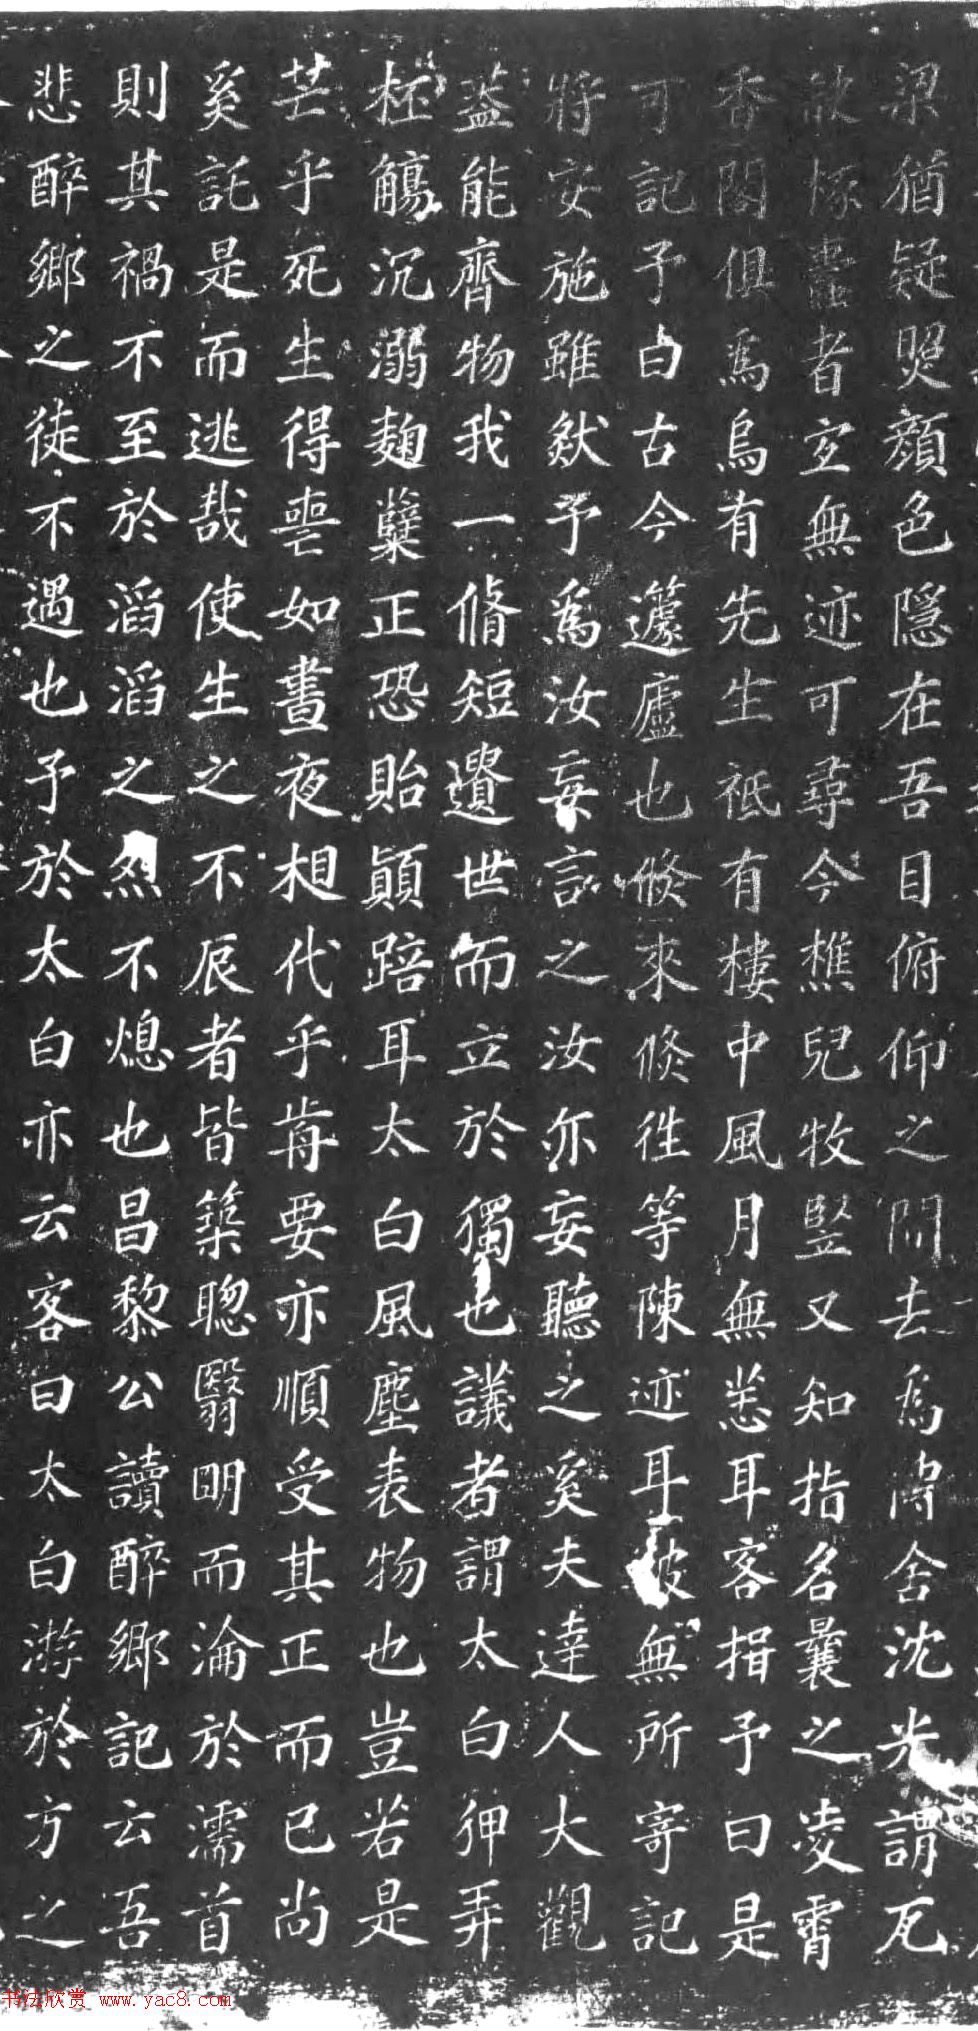 梁猶疑照顔色隱在吾目俯仰之間去爲傳舍沈光謂瓦
欹椽蠹者宜無迹可尋今樵兒牧竪又知指名曩之凌霄
香閣俱爲烏有先生祗有樓中風月無恙耳客指予曰是
可記予曰古今籧廬也倏來倏往等陳迹耳彼無所寄記
將安施雖然予爲汝妄言之汝亦妄聽之奚夫達人大觀
蓋能齊物我一脩短遺世而立於獨也議者謂太白狎弄
桮觴沉溺麴糱正恐貽顛踣耳太白風塵表物也豈若是
芒乎死生得喪如晝夜相代乎前要亦順受其正而已尚
奚託是而逃哉使生之不辰者皆築聰翳明而淪於濡首
則其禍不至於滔滔之烈不熄也昌黎公讀醉鄉記云吾
悲醉鄉之徒不遇也予於太白亦云客曰太白游於方之
书法欣赏 www.yac8.com